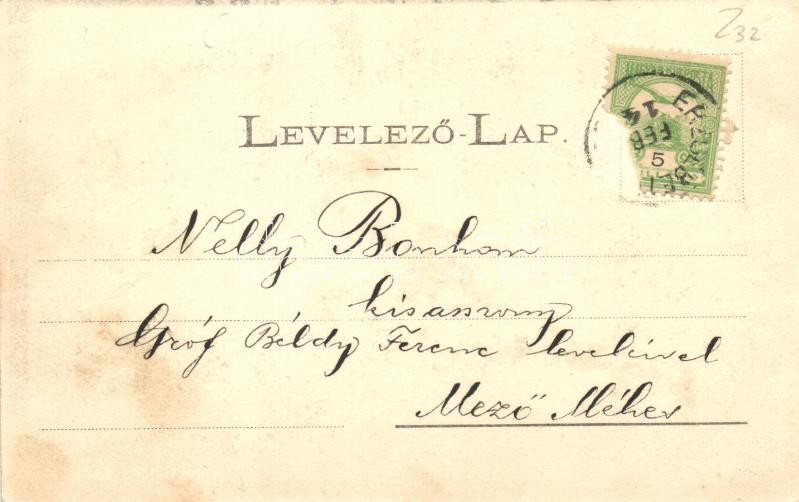 Z32
LEVELEZŐ-LAP.
FEB
14
5
Nelly Bonhom
kisasszony
Gróf Béldy Ferenc leveleivel
Mező Méhes